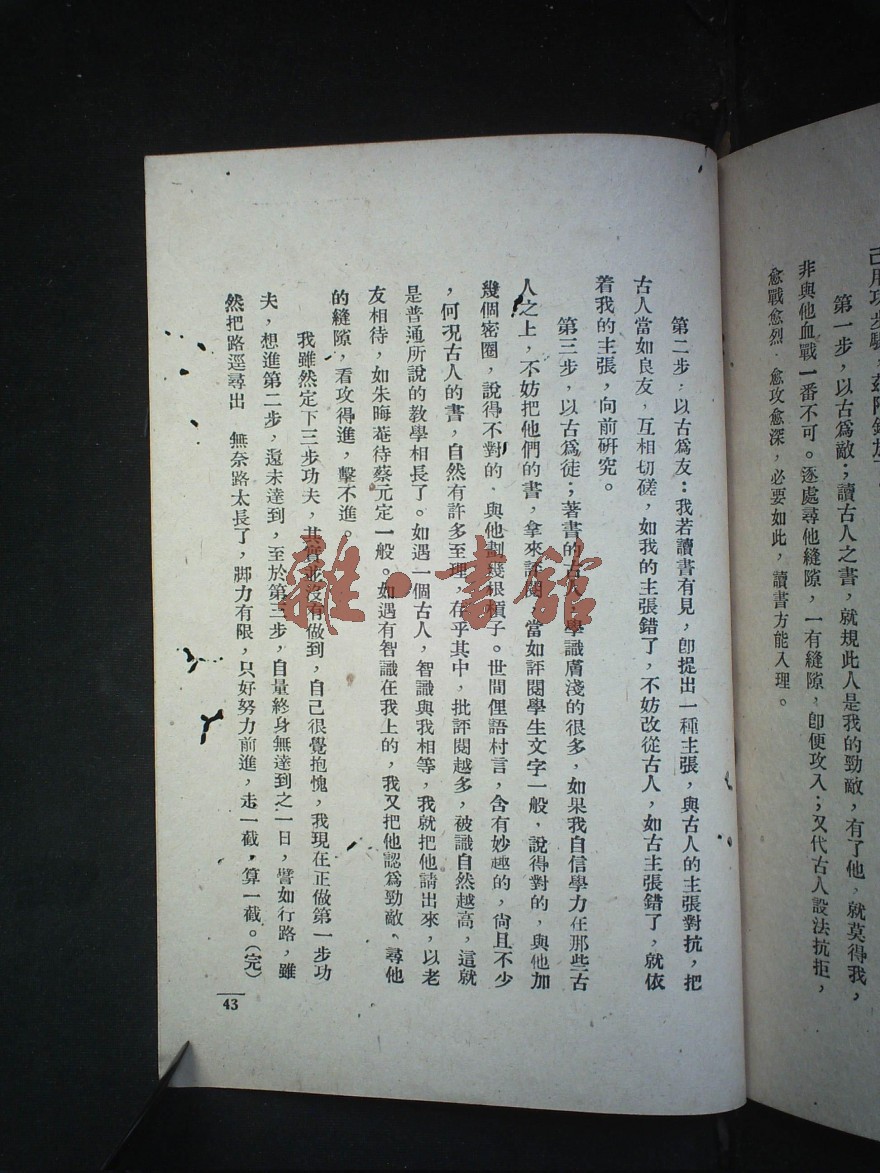 己用功步驟，茲附錄於下。
第一步，以古爲敵；讀古人之書，就規此人是我的勁敵，有了他，就莫得我，
非與他血戰一番不可。逐處尋他縫隙，一有縫隙，卽便攻入；又代古人設法抗拒，
愈戰愈烈．愈攻愈深，必要如此，讀書方能入理。
第二步．以古爲友：我若讀書有見，卽提出一種主張，與古人的主張對抗，把
古人當如良友，互相切磋，如我的主張錯了，不妨改從古人，如古主張錯了，就依
着我的主張，向前硏究。
第三步，以古爲徒；著書的古人，學識膚淺的很多，如果我自信學力在那些古
人之上，不妨把他們的書，拿來評閱，當如評閱學生文字一般，說得對的，與他加
幾個密圈，說得不對的．與他劃幾根槓子。世間俚語村言，含有妙趣的，尙且不少
，何况古人的書，自然有許多至理，存乎其中，批評閱越多，被識自然越高，這就
是普通所說的敎學相長了。如遇一個古人，智識與我相等，我就把他請出來，以老
友相待，如朱晦菴待蔡元定一般。如遇有智識在我上的，我又把他認爲勁敵．尋他
的縫隙，看攻得進，擊不進。
我雖然定下三步功夫，其實並沒有做到，自己很覺抱愧，我現在正做第一步功
夫，想進第二步，還未達到，至於第三步，自量終身無達到之一日，譬如行路，雖
然把路逕尋出 無奈路太長了，脚力有限，只好努力前進，走一截，算一截。(完)
43
雜·書館